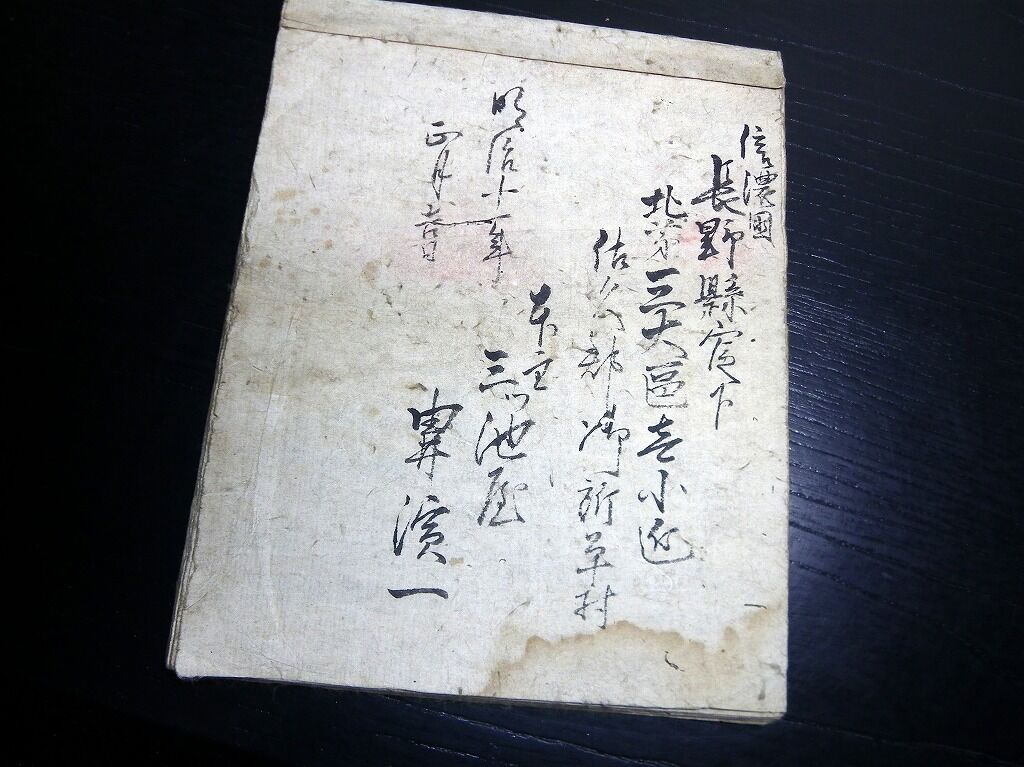 信濃國
長野縣官下
北第三大區壱小區
佐久郡御所平村
本主
三池屋
濱一
明治十一年
正月吉日